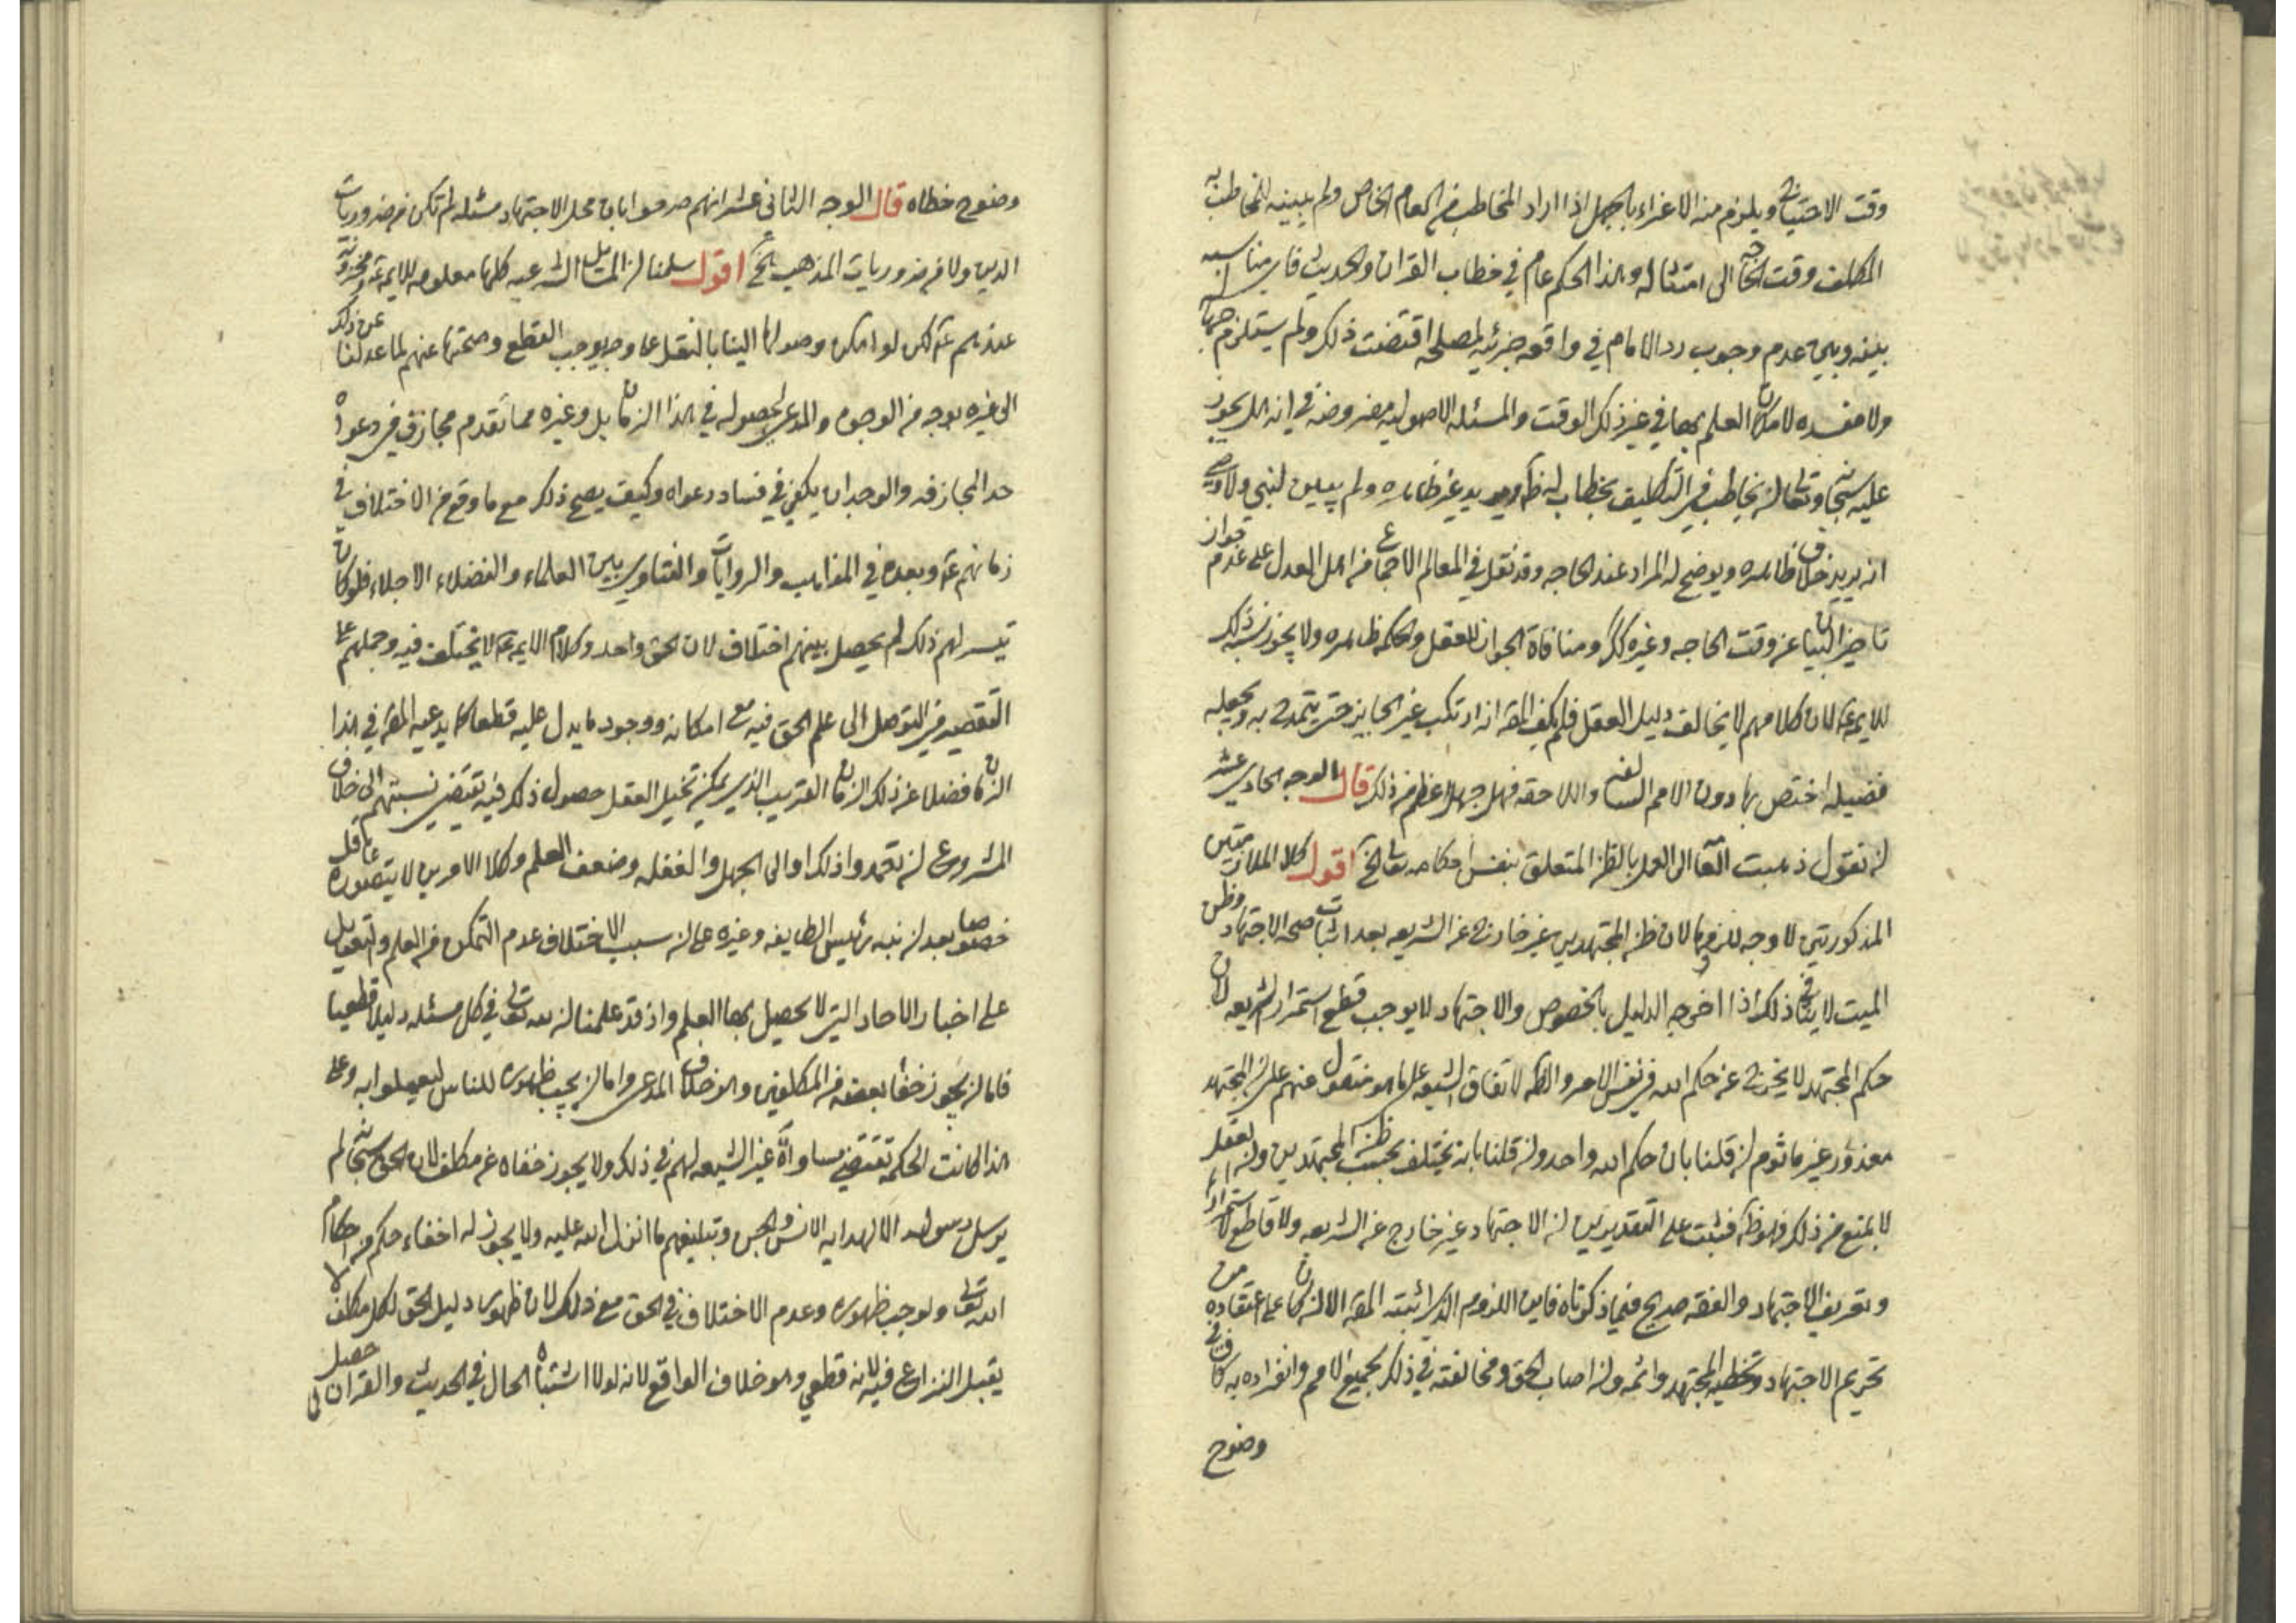 وقت الاحتياج ويلزم منه الاغراء بالجهل اذا اراد المخاطب من العام الخاص ولم يبينه للمخاطب به
المكلف وقت الحاجة الى امتثاله وهذا الحكم عام في خطاب القران والحديث فاي مناسبه
بينه وبين عدم وجوب رد الامام في واقعه جزئيه لمصلحه اقتضت ذلك ولم يستلزم جهلا
ولا مفسده لامكان العلم بها في غير ذلك الوقت والمسئله الاصوليه مفروضه في انه هل يجوز
عليه سبحانه وتعالى ان يخاطب في التكليف بخطاب له ظاهر ويريد غير ظاهره ولم يبين لنبي ولا وصي
انه يريد خلاف ظاهره ويوضح له المراد عند الحاجه وقد نقل في المعالم الاجماع من اهل العدل على عدم جواز
تاخير البيان عن وقت الحاجه وغيره كك ومنافاة الجواز للعقل والحكمه ظاهره ولا يجوز نسبة ذلك
للايمه ع لان كلامهم لا يخالف دليل العقل فلم يكف المص انه ارتكب غير الجايز حتى يتمدح به ويجعله
فضيله اختص بها دون الامم السالفه واللاحقه فهل جهل اعظم من ذلك قال الوجه الحادي عشر
ان نقول ذهبت العامه الى العمل بالظن المتعلق بنفس احكامه تعالى الخ اقول كلا الملازمتين
المذكورتين لا وجه للزومها لان ظن المجتهدين غير خارج عن الشريعه بعد اثبات صحه الاجتهاد وظن
الميت لا ينافي ذلك اذا اخرجه الدليل بالخصوص والاجتهاد لا يوجب قطع استمرار الشريعه لان
حكم المجتهد لا يخرج عن حكم الله في نفس الامر والظاهر لاتفاق الشيعه على ما هو منقول عنهم على ان المجتهد
معذور غير ماثوم ان قلنا بان حكم الله واحد وان قلنا بانه يختلف بحسب ظن المجتهدين وان العقل
لا يمنع من ذلك فهو ظاهر فثبت على التقديرين ان الاجتهاد غير خارج عن الشريعه ولا قاطع لاستمرارها
وتعريف الاجتهاد والفقه صريح فيما ذكرناه فاين اللزوم الذي اثبته المص الا ان كان على اعتقاده من
تحريم الاجتهاد وتخطيه المجتهد واثمه وانه اصاب الحق ومخالفته في ذلك لجميع الامم وانفراده به كاف في
وضوح
وضوح خطاه قال الوجه الثاني عشر انهم صرحوا بان محل الاجتهاد مسئله لم تكن من ضروريات
الدين ولا من ضروريات المذهب الخ اقول سلمنا ان المسائل الشرعيه كلها معلومه للايمه ع ومخزونة
عندهم ع لكن لو امكن وصولها الينا بالنقل على وجه يوجب القطع وصحتها عنهم لما عدلنا عن ذلك
الى غيره بوجه من الوجوه والمدعي لحصوله في هذا الزمان بل وغيره مما تقدم مجازف في دعواه
حد المجازفه والوجدان يكفي في فساد دعواه وكيف يصح ذلك مع ما وقع من الاختلاف في
زمانهم ع وبعده في المذاهب والروايات والفتاوي بين العلماء والفضلاء الاجلاء فلو كان
تيسر لهم ذلك لم يحصل بينهم اختلاف لان الحق واحد وكلام الايمه ع لا يختلف فيه وحملهم على
التقصير في التوصل الى علم الحق فيه مع امكانه ووجود ما يدل عليه قطعا كما يدعيه المص في هذا
الزمان فضلا عن ذلك الزمان القريب الذي يمكن تخيل العقل حصول ذلك فيه تقتضي نسبتهم الى خلاف
المشروع ان تعمدوا ذلك او الى الجهل والغفله وضعف العلم وكلا الامرين لا يتصوره عاقل
خصوصا بعد ان نبه رئيس الطايفه وغيره على ان سبب الاختلاف عدم التمكن من العلم والتعويل
على اخبار الاحاد التي لا يحصل بها العلم واذ قد علمنا ان لله تعالى في كل مسئله دليلا قطعيا
فاما ان يجوز خفا بعضه من المكلفين وهو خلاف المدعى واما ان يجب ظهوره للناس ليعملوا به وعلى
هذا كانت الحكمه تقتضي مساواة غير الشيعه لهم في ذلك ولا يجوز خفاه عن مكلف لان الحق سبحانه لم
يرسل رسوله الا لهدايه الانس والجن وتبليغهم ما انزل الله عليه ولا يجوز له اخفاء حكم من احكام
الله تعالى ولو جب ظهوره وعدم الاختلاف في الحق مع ذلك لان ظهور دليل الحق لكل مكلف لا
يقبل النزاع فيه لانه قطعي وهو خلاف الواقع لانه لولا اشتباه الحال في الحديث والقران لما حصل